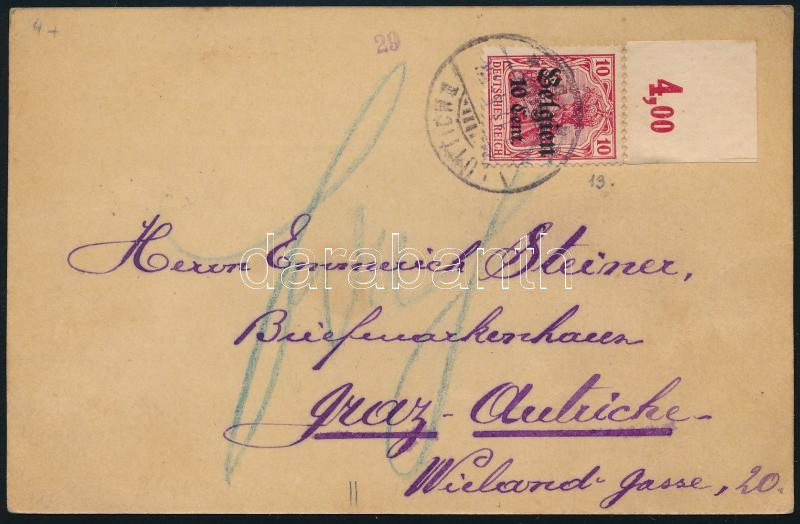 4
29
LÜTTICH
10 DEUTSCHES REICH 10
Belgien
10 Cent
4,00
13.
Herrn Emmerich Steiner,
darabanth.com
Briefmarkenhaus
Graz - Autriche
Wieland-gasse, 20.